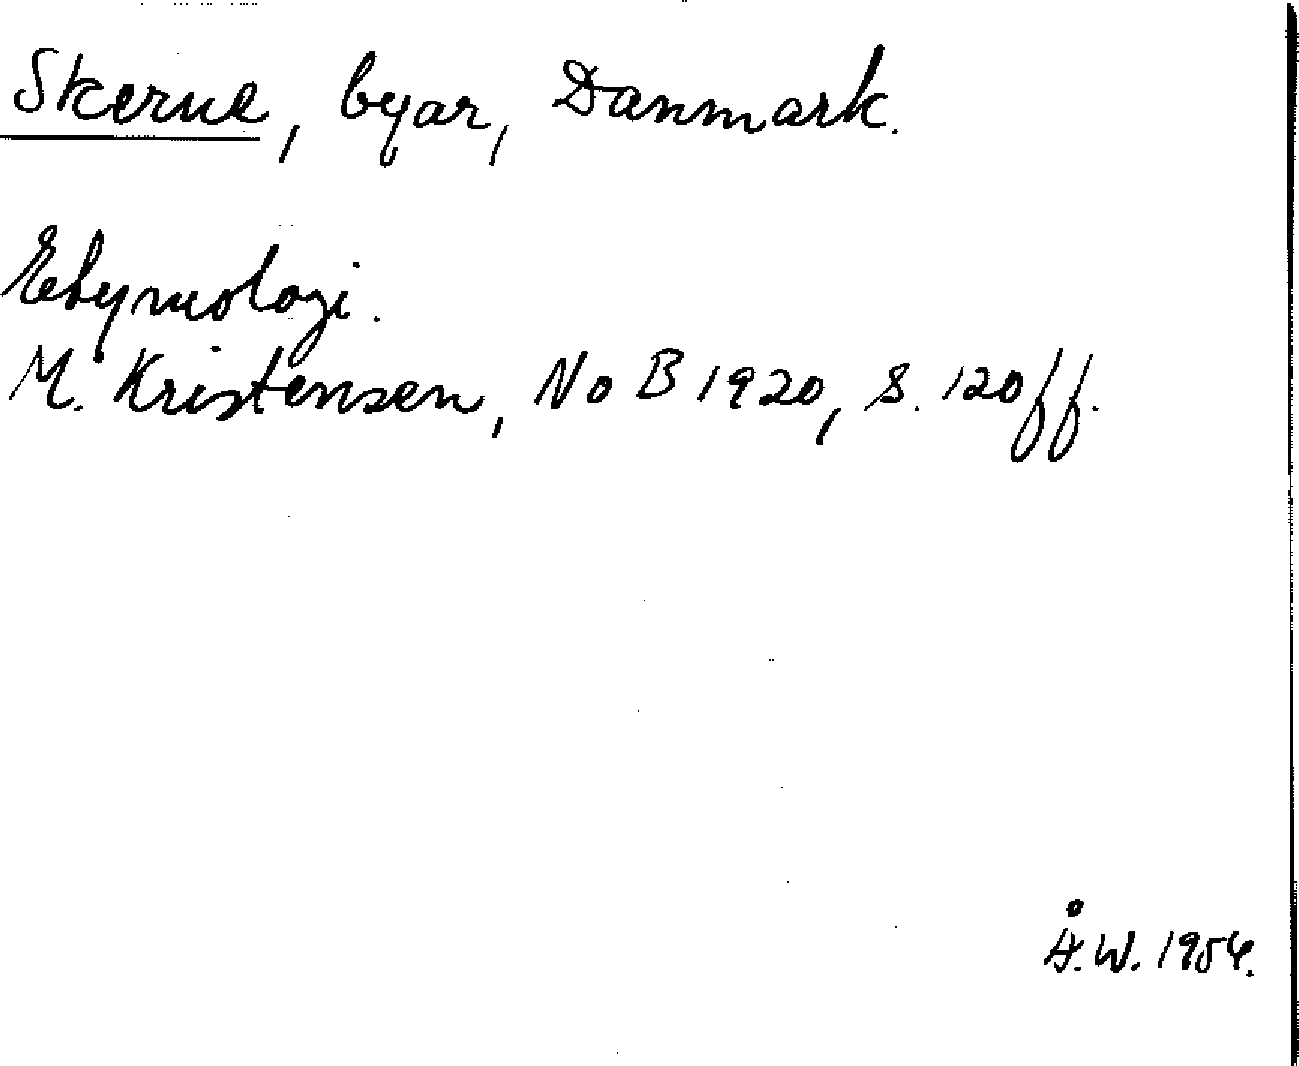 Skerne, byar, Danmark.
Etymologi.
M. Kristensen, NoB 1920, S. 120 ff.
Å.W. 1954.